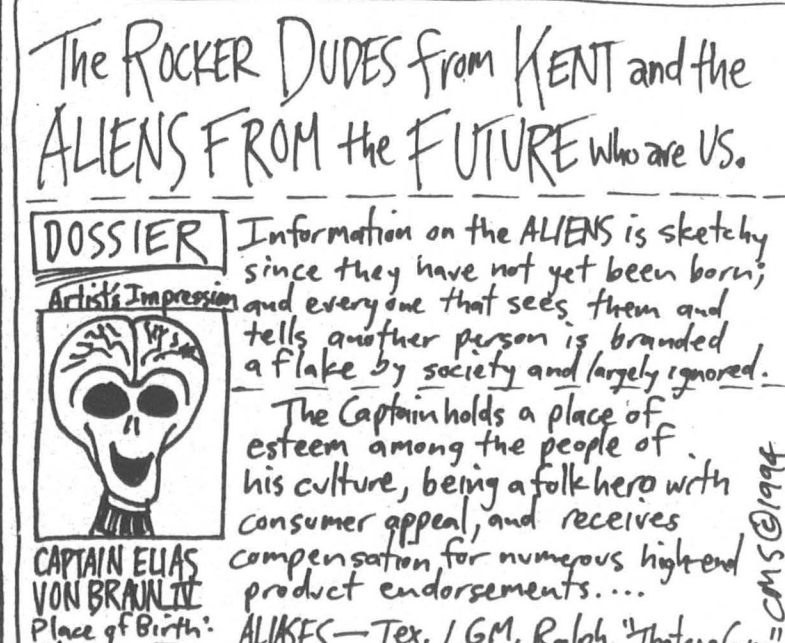 The ROCKER DUDES from KENT and the
ALIENS FROM the FUTURE who are US.
DOSSIER
Artist's Impression
CAPTAIN ELIAS
VON BRAUN IV
Place of Birth:
Information on the ALIENS is sketchy
since they have not yet been born;
and everyone that sees them and
tells another person is branded
a flake by society and largely ignored.
The Captain holds a place of
esteem among the people of
his culture, being a folk hero with
consumer appeal, and receives
compensation for numerous high-end
product endorsements....
ALIASES — Tex, / GM, Ralph
CMS©1994